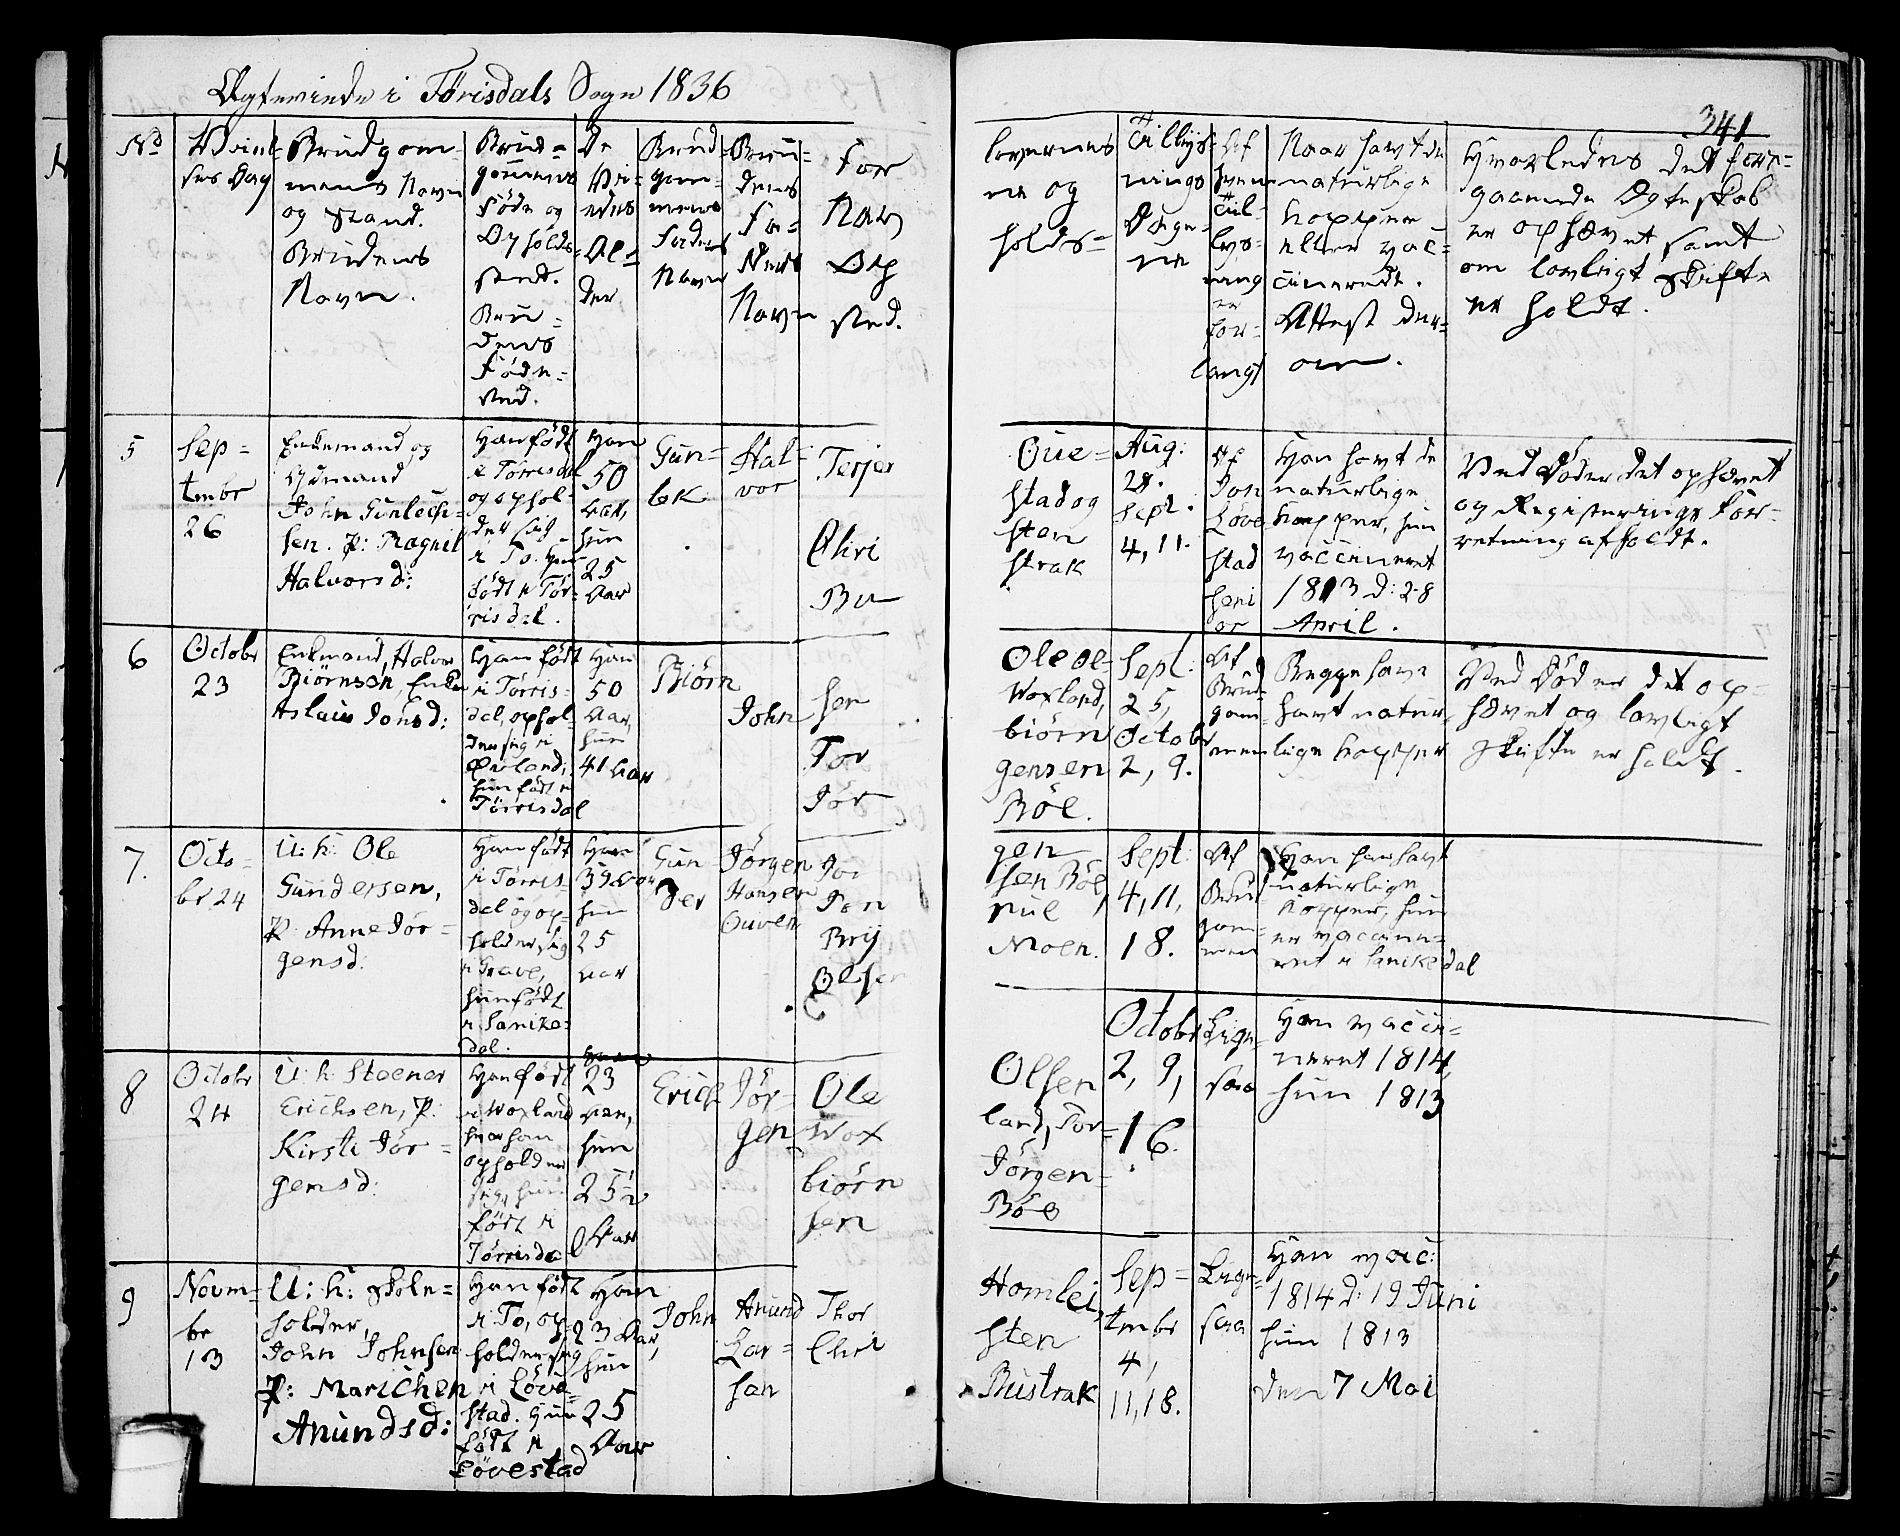 Ægteviede i Tørisdals Sogn 1836
341
No
Vviel-
ses Dag
Brudgom-
mens Navn
og Stand.
Brudens
Navn.
Brud-
gommens
Føde og
Opholds-
sted.
Bru-
dens
Føde-
sted.
De
Vvi-
edes
Al-
der
Brud-
gom-
mens
Faders
Navn
Bru-
dens
Fa-
ders
Navn
For
Nav
Op
sted.
lovernes
ne og
holds-
Tillys-
nings
Dage-
ne
Af
hvem
Til-
lys-
ning
er
for-
langt
Naar havt de
naturlige
Kopper
eller vac-
cinerede.
Attest der-
om.
Hvorledes det fore-
gaaende Ægteskab
er ophævet samt
om lovligt Skifte
er holdt.
5
Sep-
tmbr
26
Enkemand og
Gdmand
John Gunlech-
sen. P: Ragnil
Halvorsd:
Han født
i Tørrisdal
og ophol-
der sig
i To. Hun
født i Tør-
risdal.
Han
50
Aar,
hun
25
Aar
Gun-
lek
Hal-
vor
Terjer
Chri
Bu
Oue-
stad og
sten
strak
Aug:
28.
Sept.
4, 11.
Af
Jon
Løve
stad
seni
or
Han havt de
naturlige
Kopper, hun
vaccineret
1813 d: 28
April.
Ved Døden det ophævet
og Registerings For-
retning afholdt.
6
Octobr
23
Enkmand, Halvor
Biörnsen, Enke
Aslaug Jonsd:
Han født
i Tørris-
dal, ophol-
der sig i
Ovland,
hun født i
Tørrisdal
Han
50
Aar,
hun
41 Aar
Biörn
John
sen
Tor
Jör
Ole Ol-
Woxland,
biörn
gensen
Böl.
Sept:
25,
Octobr
2, 9.
Af
Brud-
gom-
men
Begge have
havt natur-
lige Kopper
Ved Død er det op-
hævet og lovligt
Skifte er holdt.
7.
Octo-
br 24
U: k: Ole
Gundersen,
P: Anne Jör-
gensd:
Han født
i Tørris-
dal og op-
holder sig
i Grave,
hun født
i Sanike-
dal.
Han
39 Aar
hun
25
Aar
Gun
der
Jörgen
Hansen
Ouven
Jor
Jon
Bry
Olsen
gen
sen Böl
nul
Moen.
Sept:
4, 11,
18.
Af
Brud
gom-
men
Han har havt
naturlige
Kopper, hun
er vaccine-
ret i Sanikedal
8
Octobr
24
U: k: Stener
Erichsen, P:
Kirsti Jör-
gensd:
Han født
i Woxland
hvor han
opholder
sig, hun
født i
Tørrisdal
Han
23
Aar,
hun
25½
Aar
Erich
Jör-
gen
Ole
Wox
biörn
sen
Olsen
land, Tor-
Jörgen-
Böl
Octobr
2, 9,
16.
Lige-
saa
Han vacci-
neret 1814,
hun 1813
9
Novm-
br
13
U: k: Skole-
holder,
John Johnsen
P: Marichen
Anundsd:
Han født
i To, op-
holder sig
i Løve-
stad. Hun
født i
Løvestad
Han
23 Aar,
hun
25
Aar
John
Anund
Lar-
sen
Thor
Chri
Homlei,
sten
Bustrak
Sep-
tmbr
4,
11, 18.
Lige-
saa
Han vac:
1814 d: 19 Juni
hun 1813
den 7 Mai